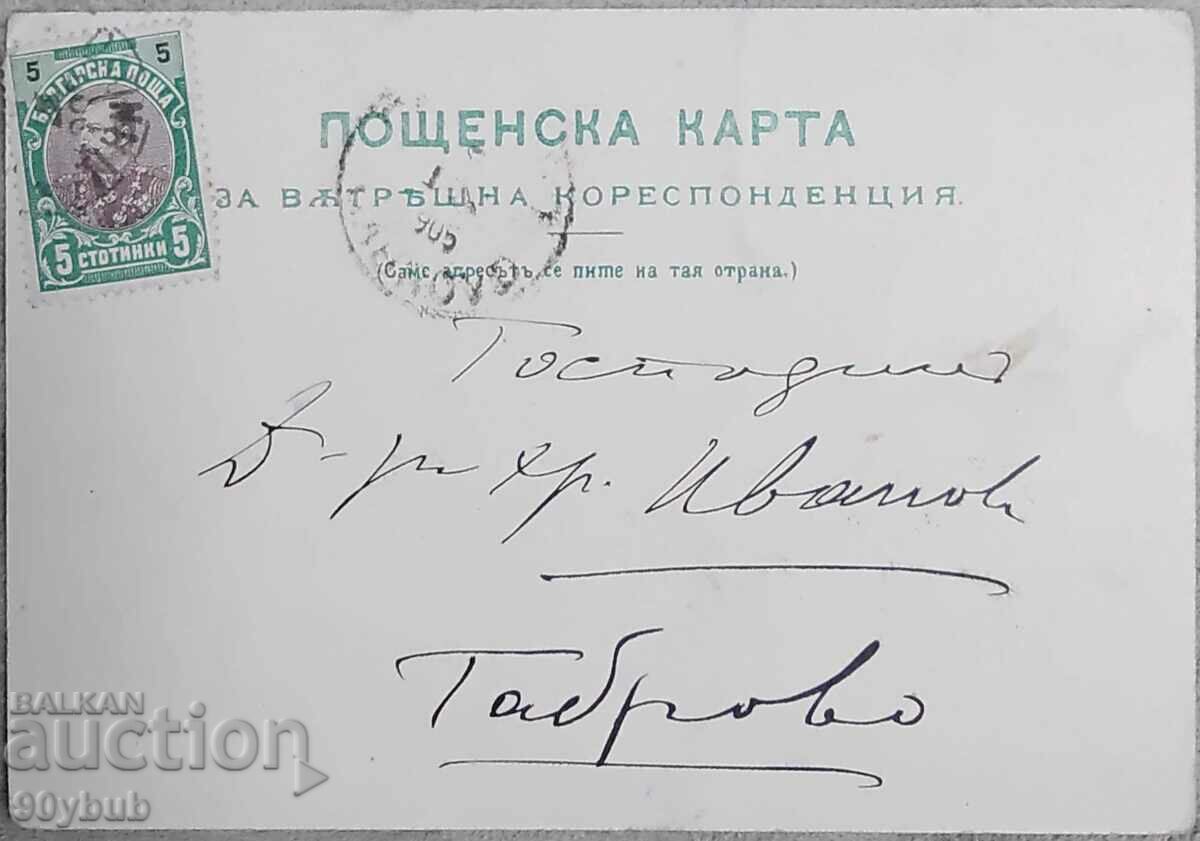 5 5
БЪЛГАРСКА ПОЩА
5 СТОТИНКИ 5
ПОЩЕНСКА КАРТА
ЗА ВѪТРѢШНА КОРЕСПОНДЕНЦИЯ.
(Само адресътъ се пише на тая страна.)
905
Господинъ
Д-ръ Хр. Ивановъ
Габрово
BALKAN
auction
90ybub